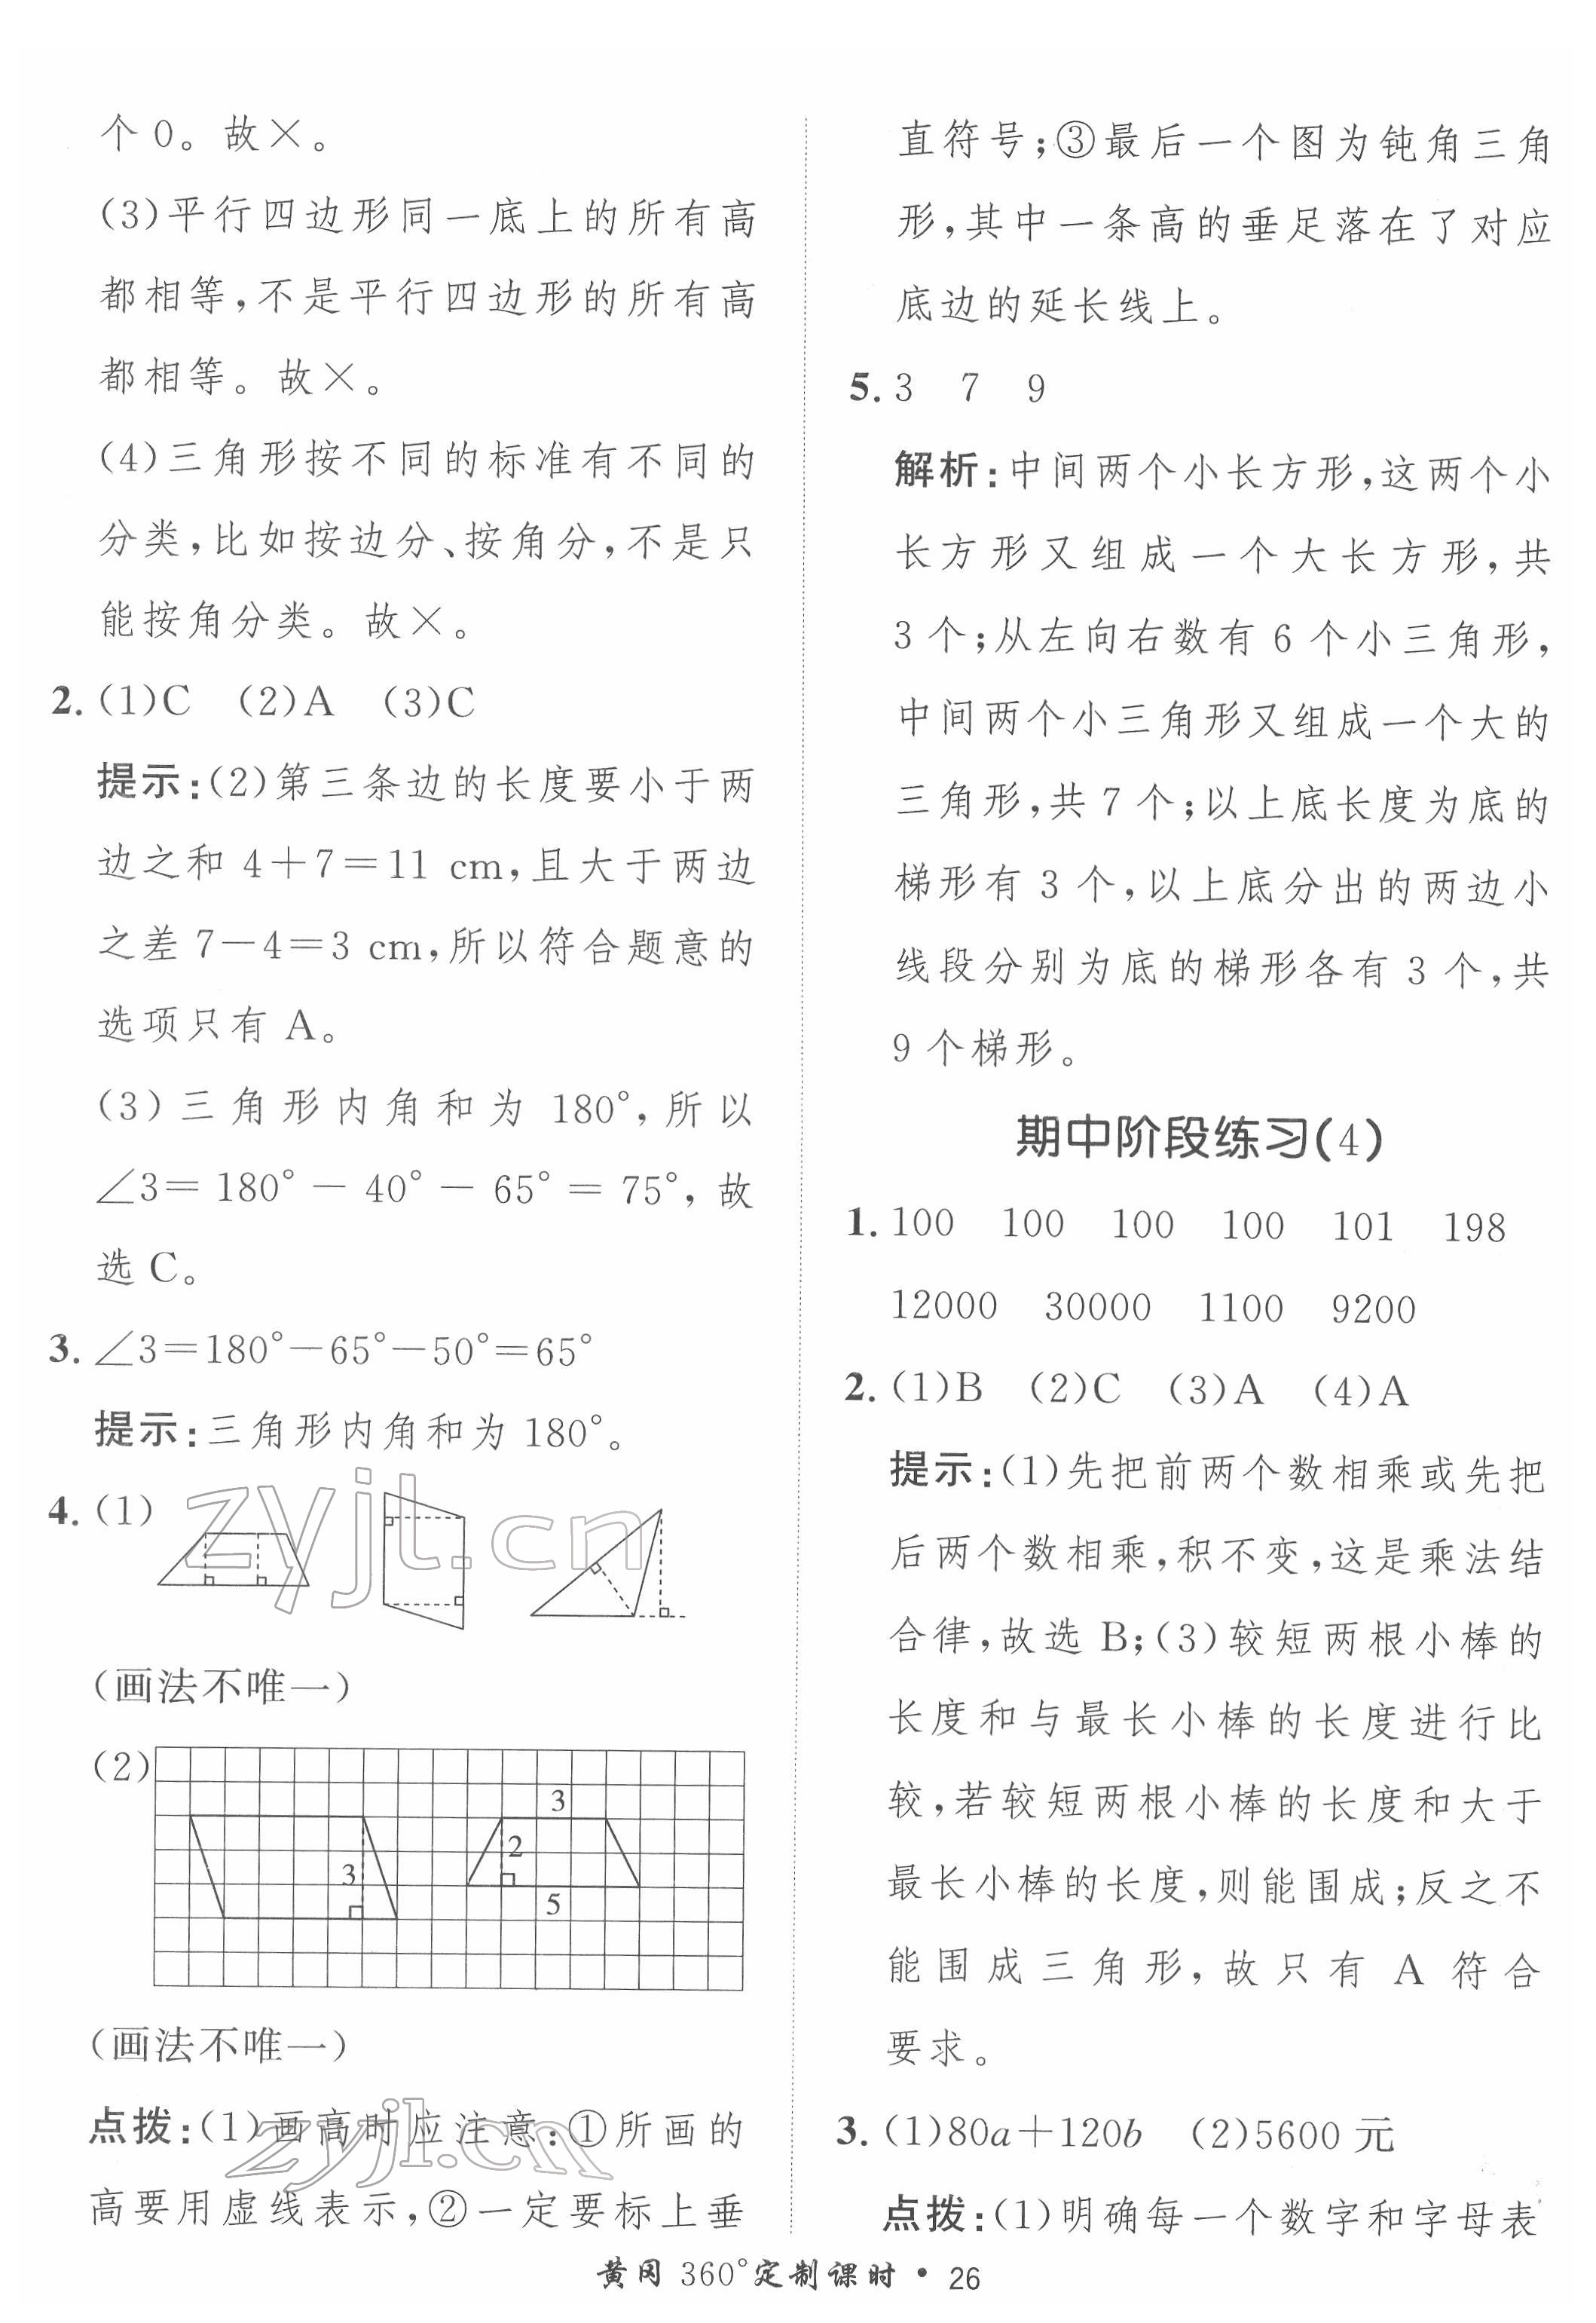 个0。故×。
(3)平行四边形同一底上的所有高
都相等,不是平行四边形的所有高
都相等。故×。
(4)三角形按不同的标准有不同的
分类,比如按边分、按角分,不是只
能按角分类。故×。
2. (1)C (2)A (3)C
提示:(2)第三条边的长度要小于两
边之和 4+7=11 cm,且大于两边
之差 7-4=3 cm,所以符合题意的
选项只有 A。
(3)三角形内角和为 180°,所以
∠3=180°-40°-65°=75°,故
选 C。
3. ∠3=180°-65°-50°=65°
提示:三角形内角和为 180°。
4. (1)
zyjl.cn
(画法不唯一)
(2)
3
2
3
5
(画法不唯一)
点拨:(1)画高时应注意:①所画的
zyjl.cn
高要用虚线表示,②一定要标上垂
直符号;③最后一个图为钝角三角
形,其中一条高的垂足落在了对应
底边的延长线上。
5. 3 7 9
解析:中间两个小长方形,这两个小
长方形又组成一个大长方形,共
3个;从左向右数有6个小三角形,
中间两个小三角形又组成一个大的
三角形,共7个;以上底长度为底的
梯形有3个,以上底分出的两边小
线段分别为底的梯形各有3个,共
9个梯形。
期中阶段练习(4)
1. 100 100 100 100 101 198
12000 30000 1100 9200
2. (1)B (2)C (3)A (4)A
提示:(1)先把前两个数相乘或先把
后两个数相乘,积不变,这是乘法结
合律,故选B;(3)较短两根小棒的
长度和与最长小棒的长度进行比
较,若较短两根小棒的长度和大于
最长小棒的长度,则能围成;反之不
能围成三角形,故只有 A 符合
要求。
3. (1)80a+120b (2)5600元
点拨:(1)明确每一个数字和字母表
黄冈 360°定制课时·26